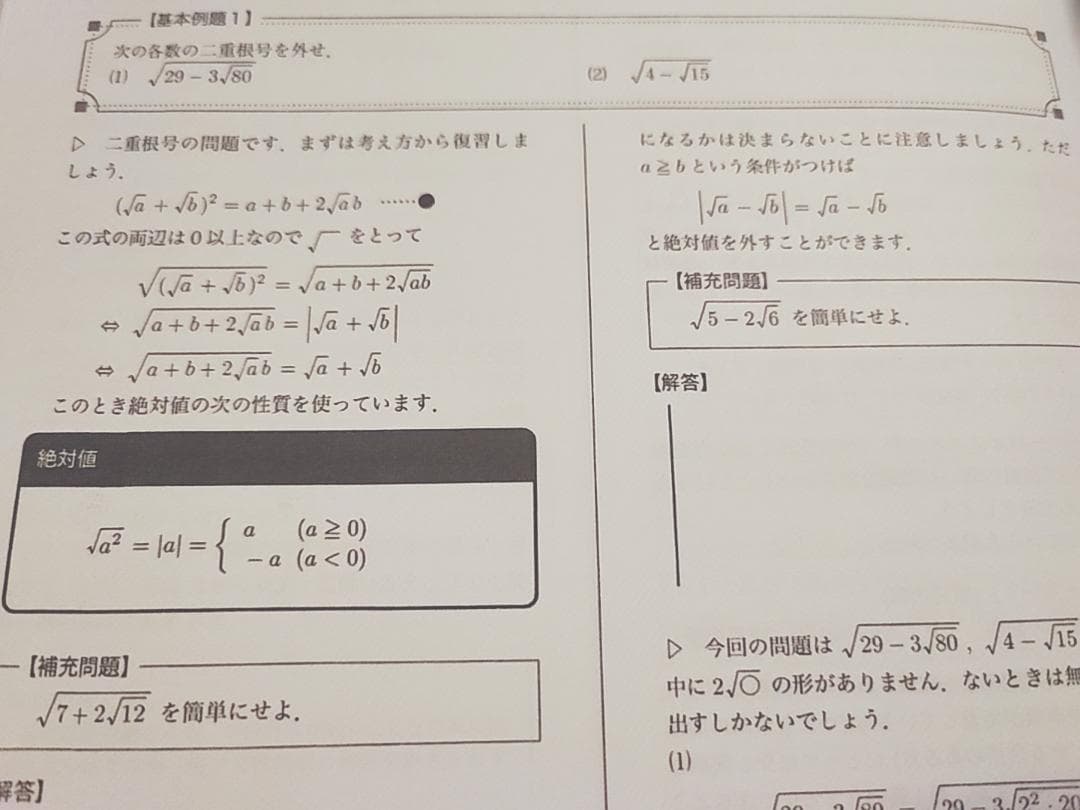 【基本例題1】
次の各数の二重根号を外せ．
(1) √(29－3√80)
(2) √(4－√15)
▷ 二重根号の問題です．まずは考え方から復習しま
しょう．
(√a＋√b)²＝a＋b＋2√ab ……●
この式の両辺は0以上なので√‾をとって
√((√a＋√b)²)＝√(a＋b＋2√ab)
⇔ √(a＋b＋2√ab)＝|√a＋√b|
⇔ √(a＋b＋2√ab)＝√a＋√b
このとき絶対値の次の性質を使っています．
絶対値
√a²＝|a|＝{ a (a≧0)
－a (a＜0)
【補充問題】
√(7＋2√12) を簡単にせよ．
解答】
になるかは決まらないことに注意しましょう．ただ
a≧bという条件がつけば
|√a－√b|＝√a－√b
と絶対値を外すことができます．
【補充問題】
√(5－2√6) を簡単にせよ．
【解答】
▷ 今回の問題は √(29－3√80)，√(4－√15)
中に2√○の形がありません．ないときは無
出すしかないでしょう．
(1)
√(29－3√80)＝√(29－3√(2²・20